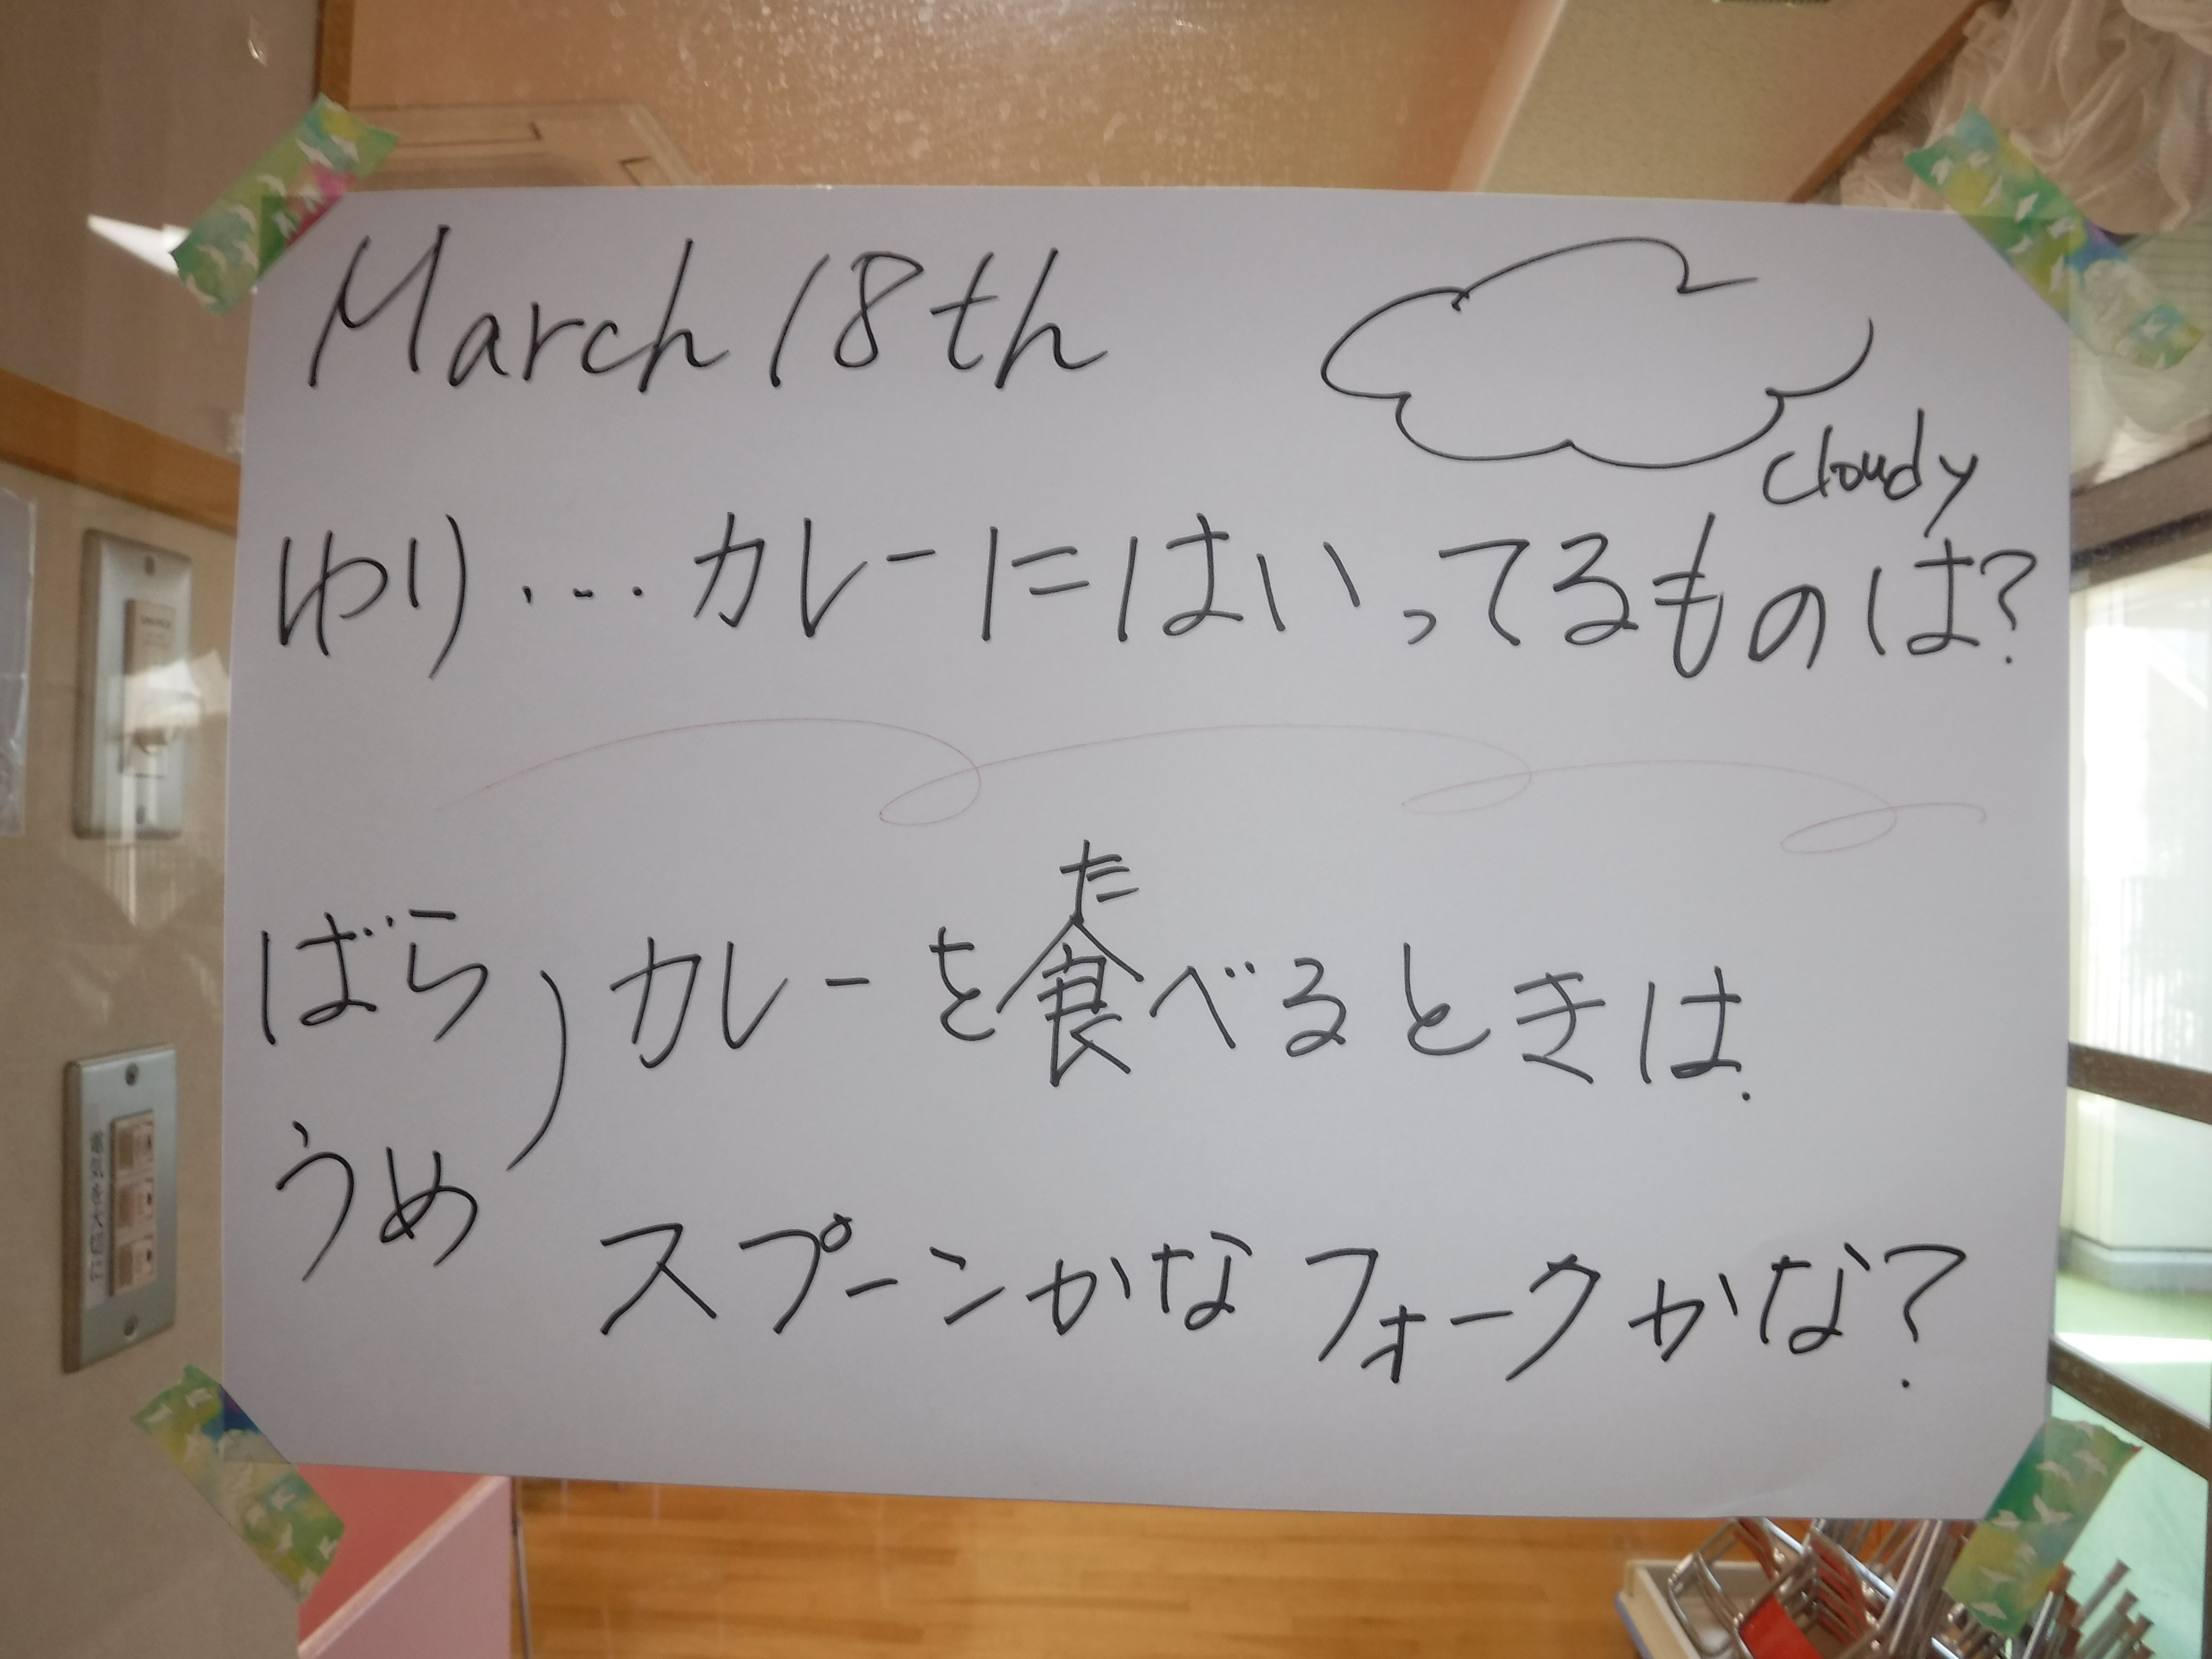 March 18th
cloudy
ゆり…カレーにはいってるものは?
ばら
うめ
た
カレーを食べるときは.
スプーンかな フォークかな?